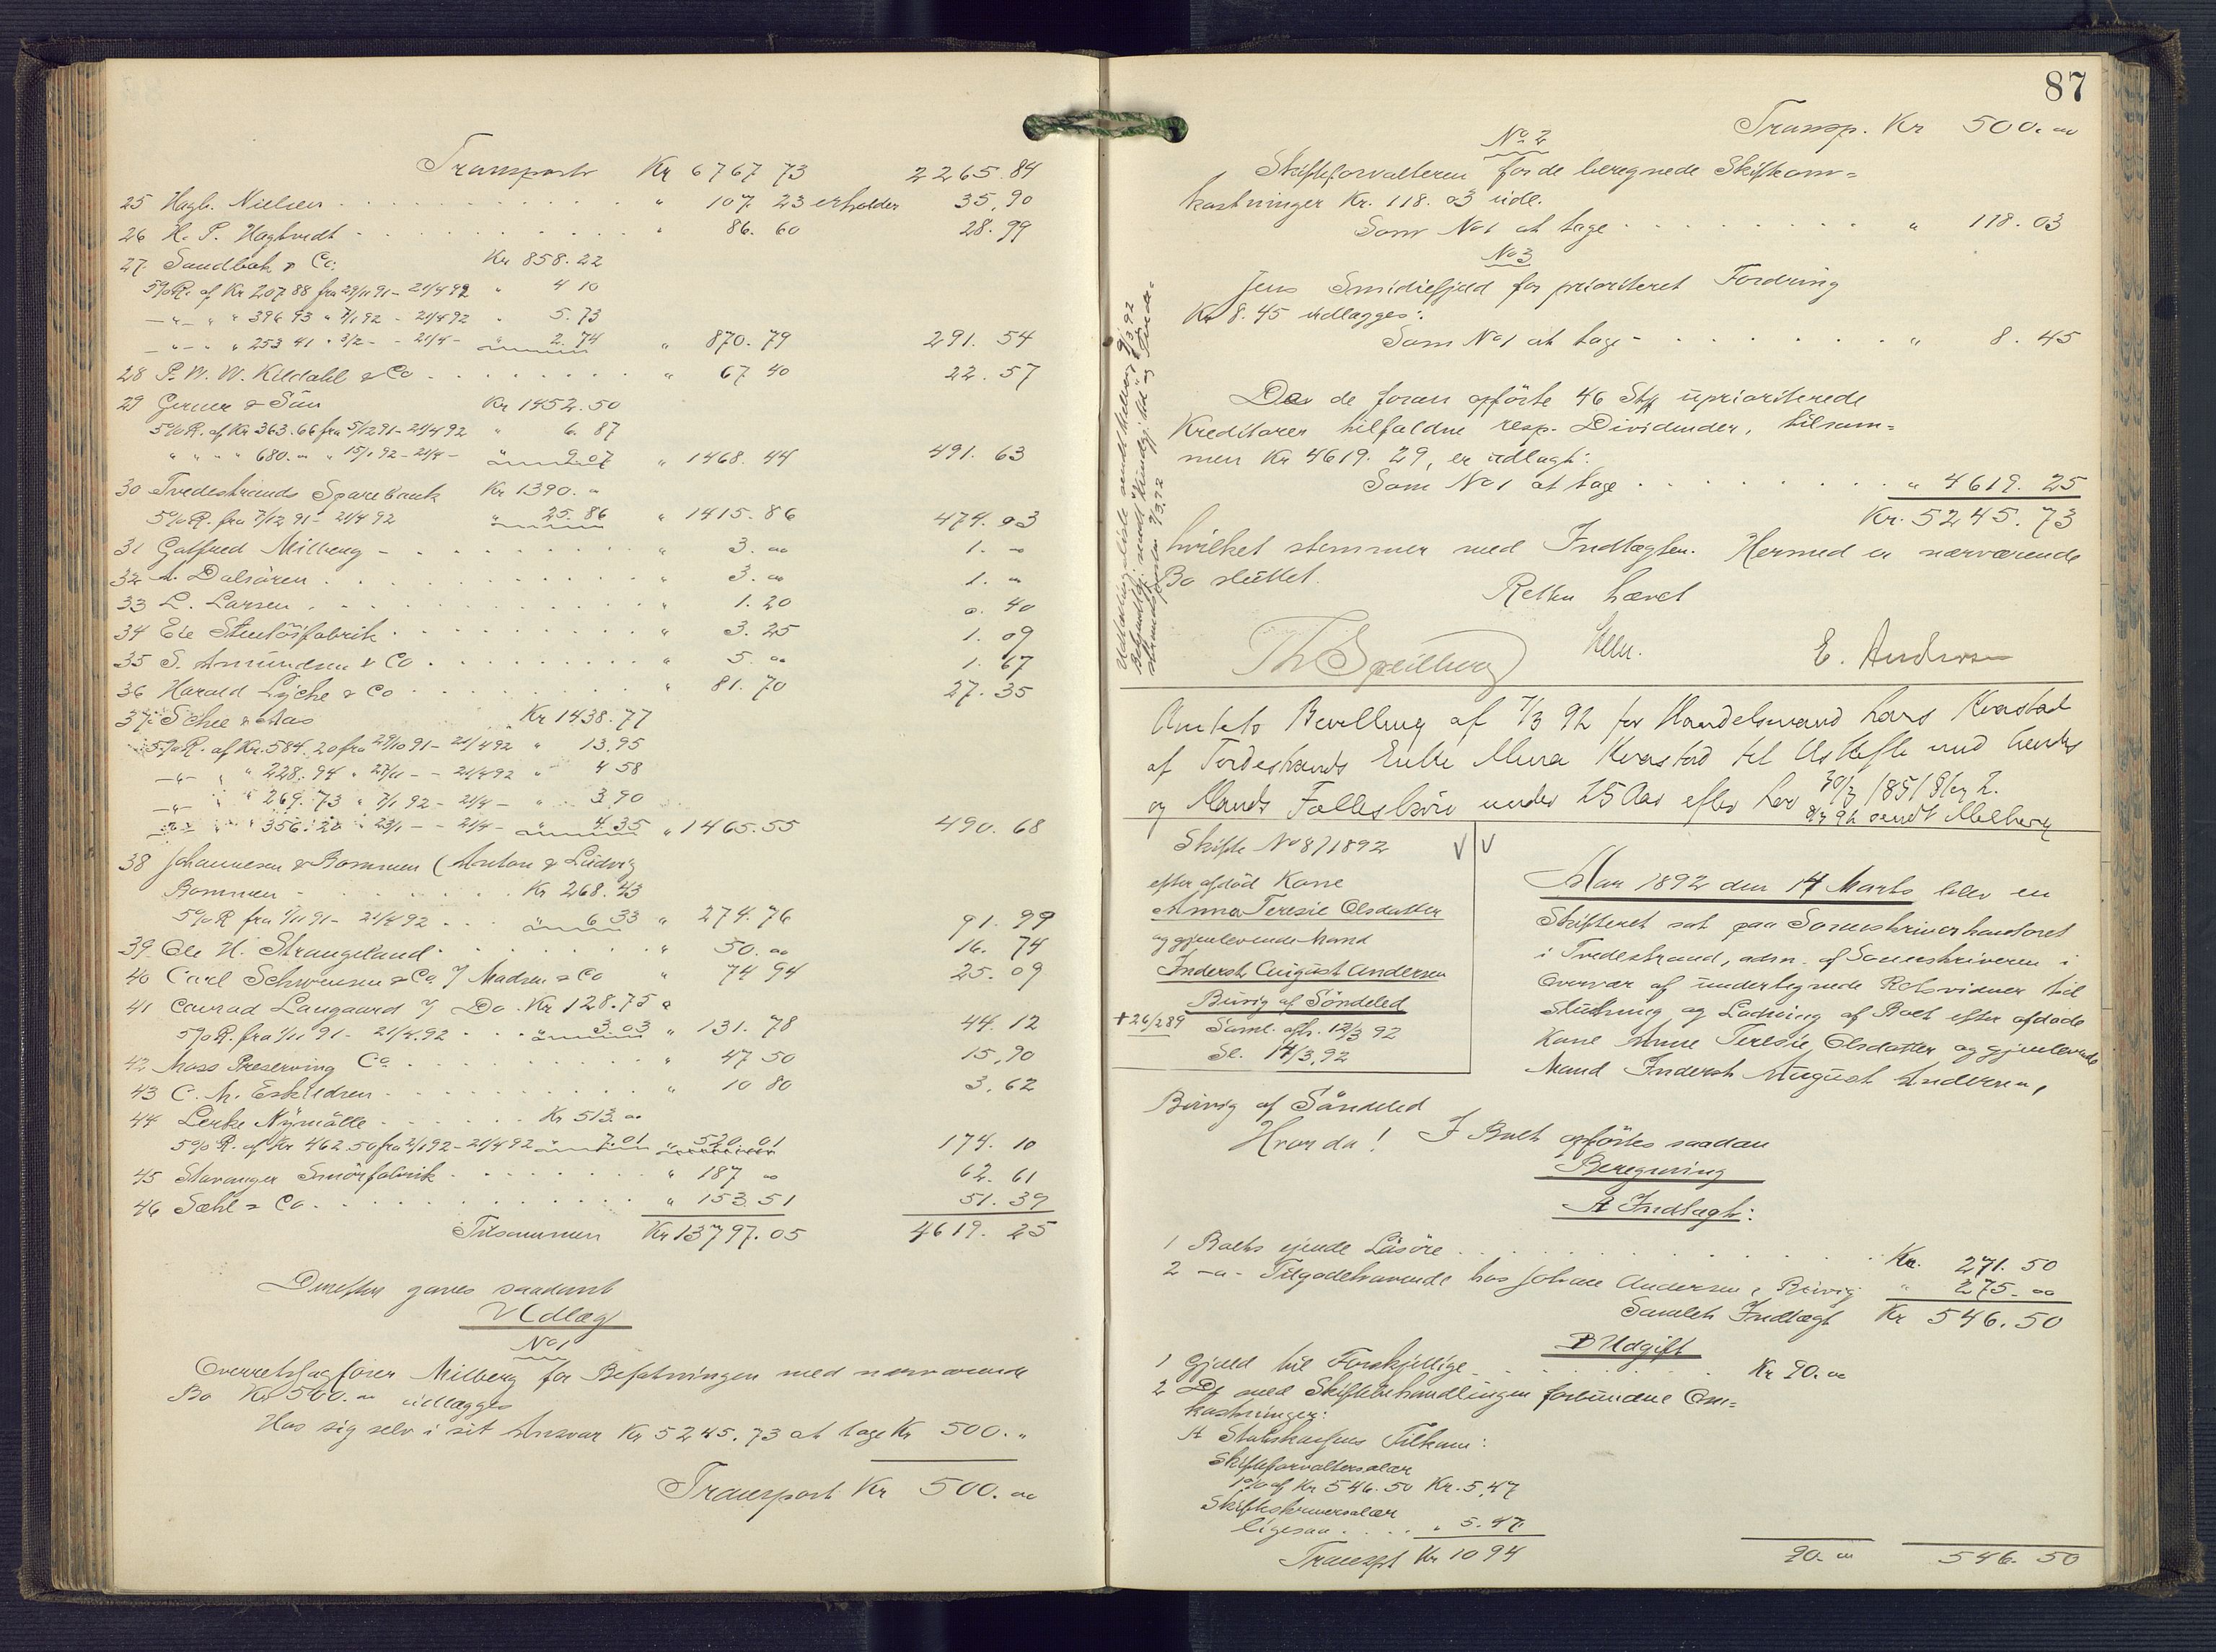 Transport Kr 6767 73 2265.84
25 Hagb. Nielsen " 107. 23 erholder 35,90
26 H. P. Hagtvedt " 86. 60 28.99
27 Sandbak & Co: Kr 858.22
5% R. af Kr 207.88 fra 29/11 91 - 21/4 92 " 4 10
-"- " " 396 93 " 7/1 92 - 21/4 92 " 5.73
-"- " " 253 41 " 3/2 - - 21/4 - " 2.74 " 870.79 291.54
28 P. W. W. Kildahl & Co " 67 40 22.57
29 Gerner & Sün Kr 1452.50
5% R. af Kr 363.66 fra 5/12 91 - 21/4 92 " 6.87
" " " " 680. " " 15/1 92 - 21/4 - " 9.07 " 1468.44 491.63
30 Tvedestrands Sparebank Kr 1390. "
5% R. fra 7/12 91 - 21/4 92 " 25.86 " 1415.86 474.03
31 Gotfred Milberg - " 3. oo 1. -
32 A. Dalsören " 3. oo 1. "
33 L. Larsen " 1.20 0.40
34 Eie " 3.25 1.09
35 S. Amundsen & Co " 5. oo 1.67
36 Harald Lyche & Co " 81.70 27.35
37. Schee & Aas Kr 1438.77
5% R. af Kr. 584.20 fra 29/10 91 - 21/4 92 " 13.95
-"- " " 228.94 " 27/11 - - 21/4 92 " 4 58
-"- " " 269.73 " 7/1 92 - 21/4 - " 3.90
-"- " " 356.20 " 23/1 - - 21/4 - " 4.35 " 1465.55 490.68
38 Johannesen & Bommen (Anton & Ludvig
Bommen - Kr 268.43
5% R fra 1/11 91 - 21/4 92 " 6 33 " 274.76 91.99
39 Ole H. Strangeland " 50. oo 16.74
40 Carl Schwensen & Co / Madsen & Co " 74 94 25.09
41 Conrad Langaard / Do. Kr 128.75
5% R. fra 1/11 91 - 21/4.92 " 3.03 " 131.78 44.12
42 Moss Preserving Co " 47 50 15,90
43 C. M. Eskildsen " 10 80 3.62
44 Lerke Nymölle Kr 513. oo
5% R. af Kr 462.50 fra 2/1 92 - 21/4 92 " 7.01 " 520.01 174.10
45 Stavanger Smörfabrik " 187 oo 62.61
46 Sæhl & Co. " 153.51 51.39
Tilsammen Kr 13797.05 4619.25
Derefter gaves saadant
Udlæg
No 1
Overretssagfører Milberg for Befatningen med nærværende
Bo Kr 500. oo udlægges
Hos sig selv i sit Ansvar Kr 5245.73 at tage Kr 500. "
Transport Kr 500. oo
87
Transp. Kr 500. oo
No 2
Skifteforvalteren for de beregnede Skifteom=
kostninger Kr. 118.03 udl.
Som No 1 at tage " 118.03
No 3
Jens Smidiefjeld for prioriteret Fordring
Kr 8.45 udlægges:
Som No 1 at tage - " 8.45
De de foran opførte 46 Stk upriorterede
Kreditorer tilfaldne resp. Dividender, tilsam=
men Kr 4619.29, er udlagt:
Som No 1 at tage " 4619.25
Kr. 5245.73
hvilket stemmer med Indtægten. Hermed er nærværende
Bo sluttet.
Retten hævet
Th Speilberg E. Andersen
Amtets Bevilling af 7/3 92 for Handelsmand Lars Kvastad
af Tvedestrands Enke Mina Kvastad til Uskifte med hendes
og Mands Fællesbörn under 25 Aar efter Lov 30/7 1851 § 1 og 2.
sendt Milberg
Skifte No 8/1892
efter afdöd Kone
Anna Teresie Olsdatter
og gjenlevende Mand
Inderst August Andersen
Bürvig af Söndeled
+ 26/2 89 Saml. afh. 12/3 92
Sl. 14/3.92
Aar 1892 den 14 Marts blev en
Skifteret sat paa Sorenskriverkontoret
i Tvedestrand, adm. af Sorenskriveren i
Overvær af undertegnede Retsvidner til
Slutning og Lodning af Boet efter afdöde
Kone Anne Teresie Olsdatter og gjenlevende
Mand Inderst August Andersen,
Bürvig af Söndeled
Hvor da! I Boet opförtes saadan
Beregning
A Indtægt:
1 Boets ejende Lösöre Kr. 271.50
2 -"- Tilgodehavende hos Johan Andersen, Bürvig " 275. oo
Samlet Indtægt Kr 546.50
B Udgift
1 Gjæld til Forskjellige Kr 90. oo
2 De med Skiftebehandlingen forbundne Om=
kostninger:
A Statskassens Tilkom:
Skifteforvaltersalær
1% af Kr 546.50 Kr. 5.47
Skifteskriversalær
ligesaa " 5.47.
Transpt Kr 10 94 90. oo 546.50